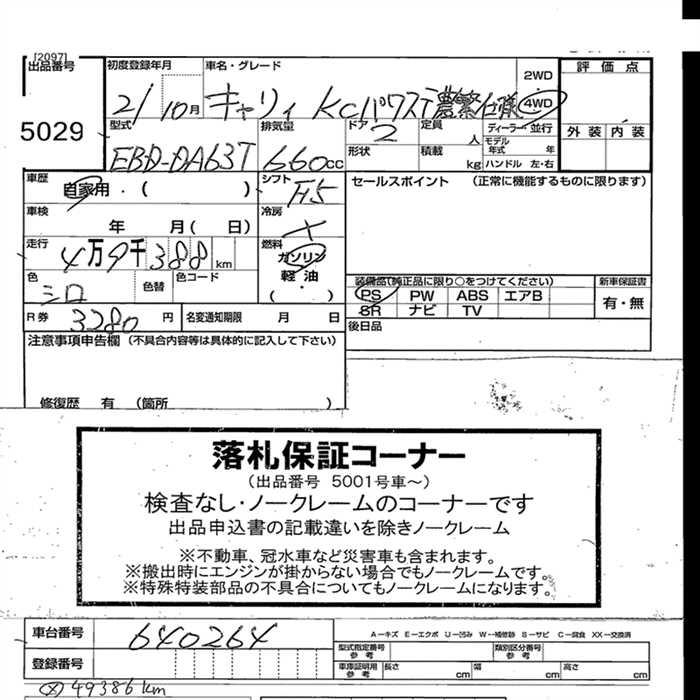 [2097]
出品番号
5029
初度登録年月
21 10月
車名・グレード
キャリィ KCパワステ農繁仕様
2WD
4WD
評価点
外装 内装
型式
EBD-DA63T
排気量
660cc
ドア 2
定員 人
ディーラー・並行
モデル年式 年
形状
積載 kg
ハンドル 左・右
車歴
自家用・( )
シフト
F5
セールスポイント (正常に機能するものに限ります)
車検
年 月( 日)
冷房
×
走行
4万9千388km
燃料
ガソリン
軽油
( ・ )
色
シロ
色替
色コード
装備品(純正品に限り○をつけてください)
PS PW ABS エアB
SR ナビ TV
新車保証書
有・無
R券 3280円
名変通知期限 月 日
後日品
注意事項申告欄(不具合内容等は具体的に記入して下さい)
修復歴 有 (箇所 )
落札保証コーナー
(出品番号 5001号車~)
検査なし・ノークレームのコーナーです
出品申込書の記載違いを除きノークレーム
※不動車、冠水車など災害車も含まれます。
※搬出時にエンジンが掛からない場合でもノークレームです。
※特殊特装部品の不具合についてもノークレームになります。
車台番号
640264
登録番号
A—キズ E—エクボ U—凹み W—補修跡 S—サビ C—腐食 XX—交換済
型式指定番号 参考
類別区分番号 参考
車庫証明用 参考
長さ cm
幅 cm
高さ cm
49386km